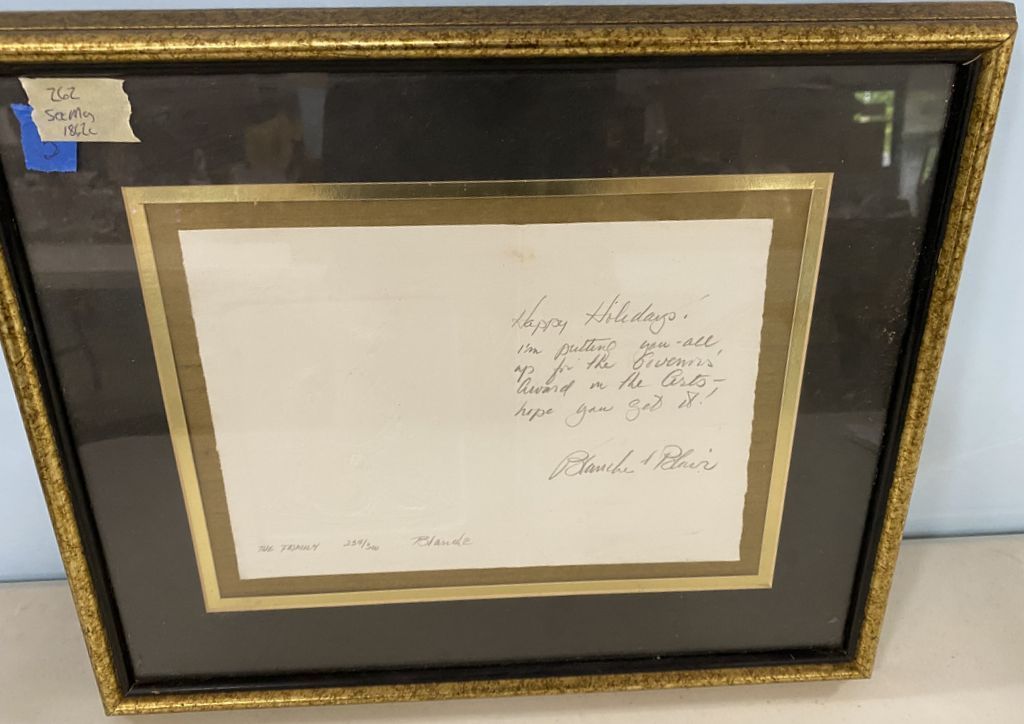 262
1862c
5
Happy Holidays!
I'm putting you-all
up for the Governors'
Award in the Arts—
hope you get it!
Blanche & Blair
THE FAMILY 234/300 Blanche